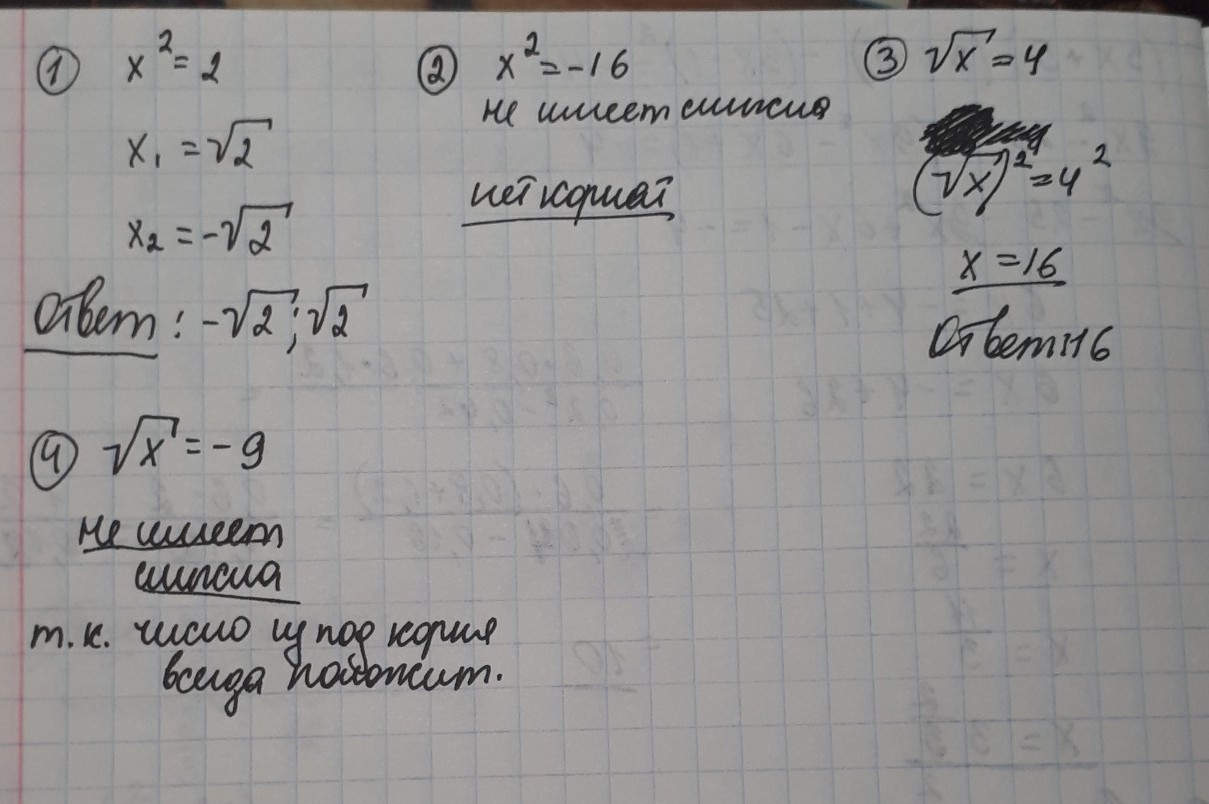 ① x² = 2
x₁ = √2
x₂ = -√2
Ответ: -√2; √2
② x² = -16
не имеет смысла
нет корней
③ √x = 4
(√x)² = 4²
x = 16
Ответ: 16
④ √x = -9
не имеет
смысла
т.к. число из под корня
всегда положит.